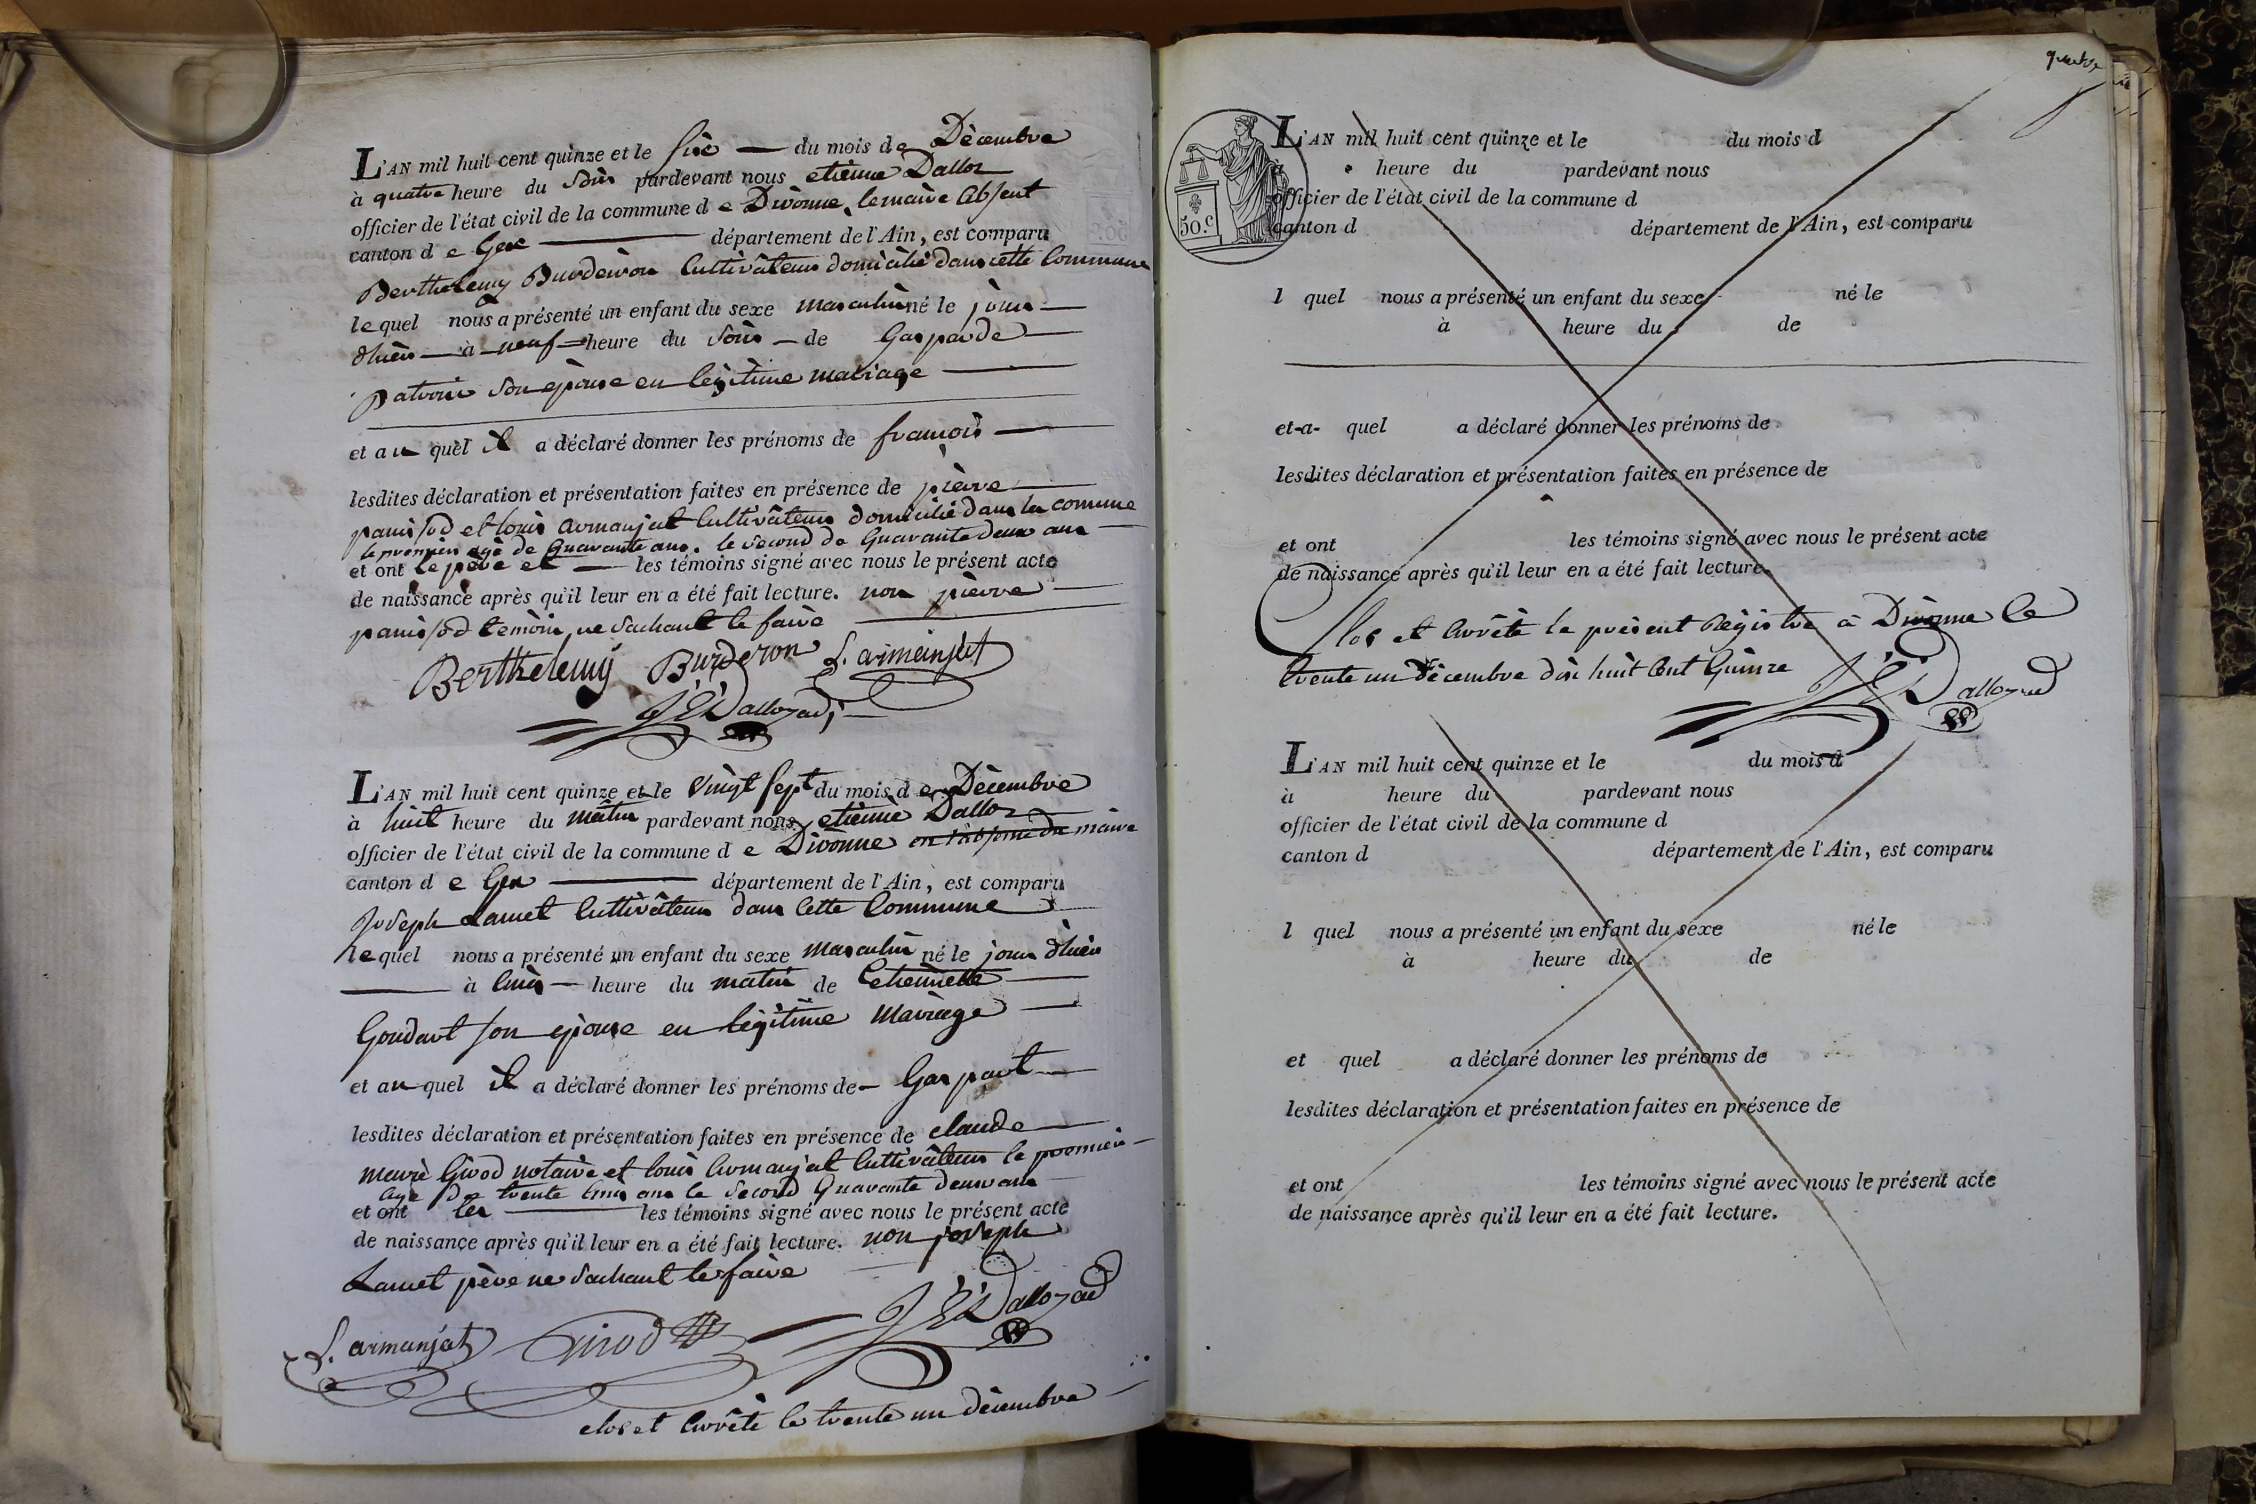 L'AN mil huit cent quinze et le six — du mois de Dècembre
à quatre heure du Soir pardevant nous etienne Dalloz
officier de l'état civil de la commune de Divonne, le maire absent
canton de Gex département de l'Ain, est comparu
Berthelemy Burdeiron Cultivateur domicilié dans cette Commune
lequel nous a présenté un enfant du sexe masculin né le jour
d'hier à neuf heure du Soir de Gasparde
Patroir Son epouse en legitime mariage
et auquel il a déclaré donner les prénoms de francois
lesdites déclaration et présentation faites en présence de pierre
panissod et louis armanjat Cultivateur domicilié dans la comune
le premier agé de Quarante ans. le second de Quarante deux ans
et ont le père et les témoins signé avec nous le présent acte
de naissance après qu'il leur en a été fait lecture. non pierre
panissod temoin ne Sachant le faire
Berthelemy Burderon L. armeinjat
J E Dalloz adj
L'AN mil huit cent quinze et le vingt sept du mois de Dècembre
à huit heure du matin pardevant nous etienne Dalloz
officier de l'état civil de la commune de Divonne en l'absence du maire
canton de Gex département de l'Ain, est comparu
Joseph Lamet Cultivateur dans Cette Commune
lequel nous a présenté un enfant du sexe masculin né le jour d'hier
à cinq heure du matin de
Goudart son epouse en legitime Mariage
et auquel il a déclaré donner les prénoms de Gaspart
lesdites déclaration et présentation faites en présence de claude
Girod notaire et louis armanjat Cultivateur le premier
agé de trente cinq ans le Second Quarante deux ans
et ont les les témoins signé avec nous le présent acte
de naissance après qu'il leur en a été fait lecture. non joseph
Lamet père ne Sachant le faire
L. armanjat Girod J E Dalloz ad
clos et arrêté le trente un dècembre
L'AN mil huit cent quinze et le du mois d
à heure du pardevant nous
officier de l'état civil de la commune d
canton d département de l'Ain, est comparu
50.c
l quel nous a présenté un enfant du sexe né le
à heure du de
et-a- quel a déclaré donner les prénoms de
lesdites déclaration et présentation faites en présence de
et ont les témoins signé avec nous le présent acte
de naissance après qu'il leur en a été fait lecture.
Clos et arrêté le present Registre à Divonne le
trente un décembre dix huit Cent Quinze
J E Dalloz ad
L'AN mil huit cent quinze et le du mois d
à heure du pardevant nous
officier de l'état civil de la commune d
canton d département de l'Ain, est comparu
l quel nous a présenté un enfant du sexe né le
à heure du de
et quel a déclaré donner les prénoms de
lesdites déclaration et présentation faites en présence de
et ont les témoins signé avec nous le présent acte
de naissance après qu'il leur en a été fait lecture.